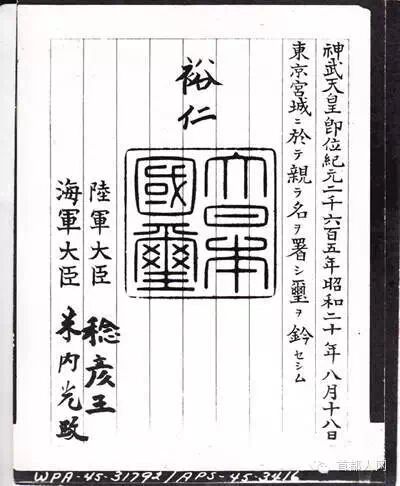 神武天皇即位紀元二千六百五年昭和二十年八月十八日
東京宮城ニ於テ親ラ名ヲ署シ璽ヲ鈐セシム
裕仁
大日本
國璽
陸軍大臣 稔彦王
海軍大臣 米內光政
WPA-45-31792/APS-45-3416
首都人网